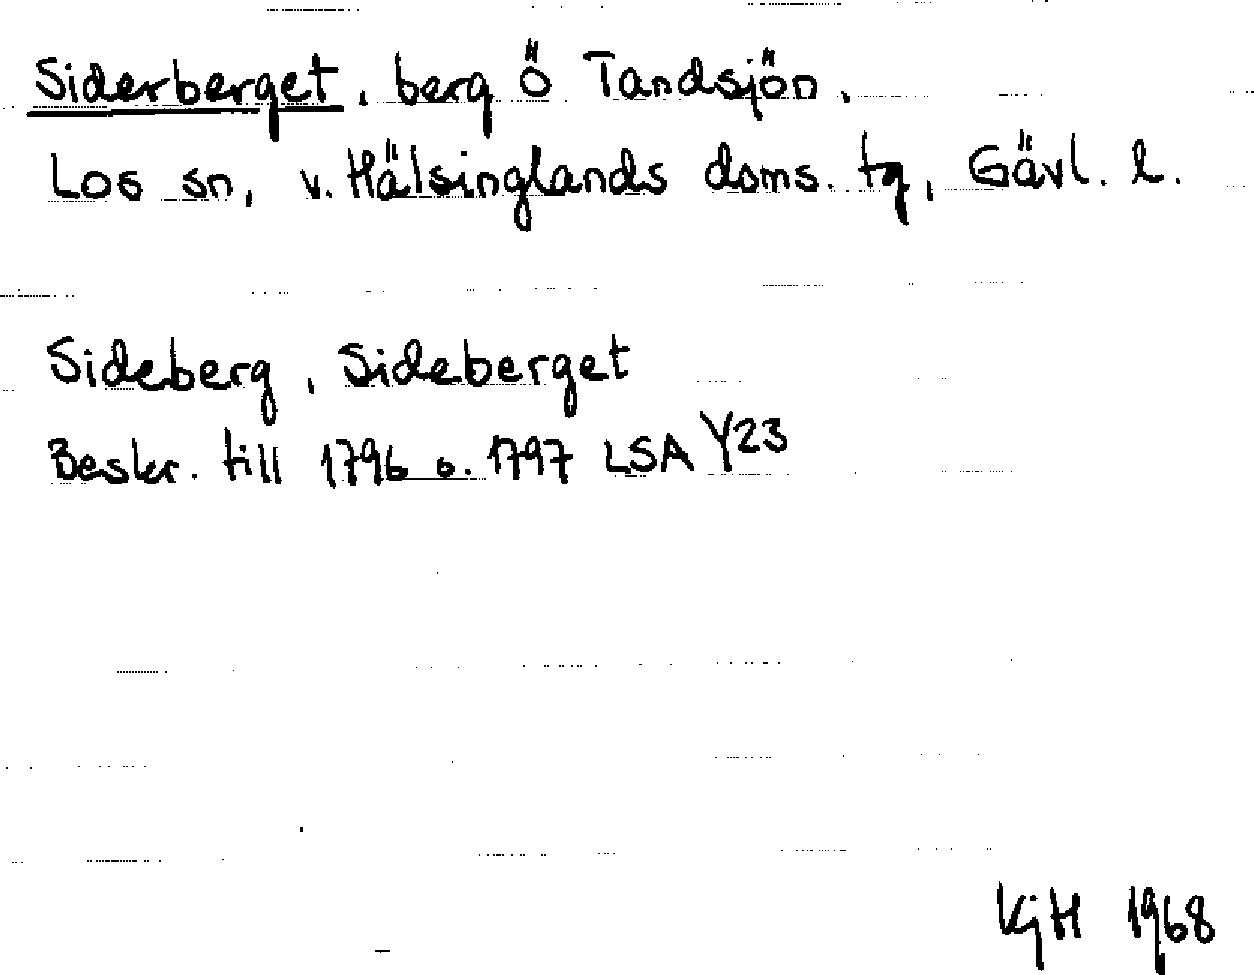 Siderberget, berg Ö Tandsjön,
Los sn, v. Hälsinglands doms. tg, Gävl. l.
Sideberg, Sideberget
Beskr. till 1796 o. 1797 LSA Y23
KjH 1968